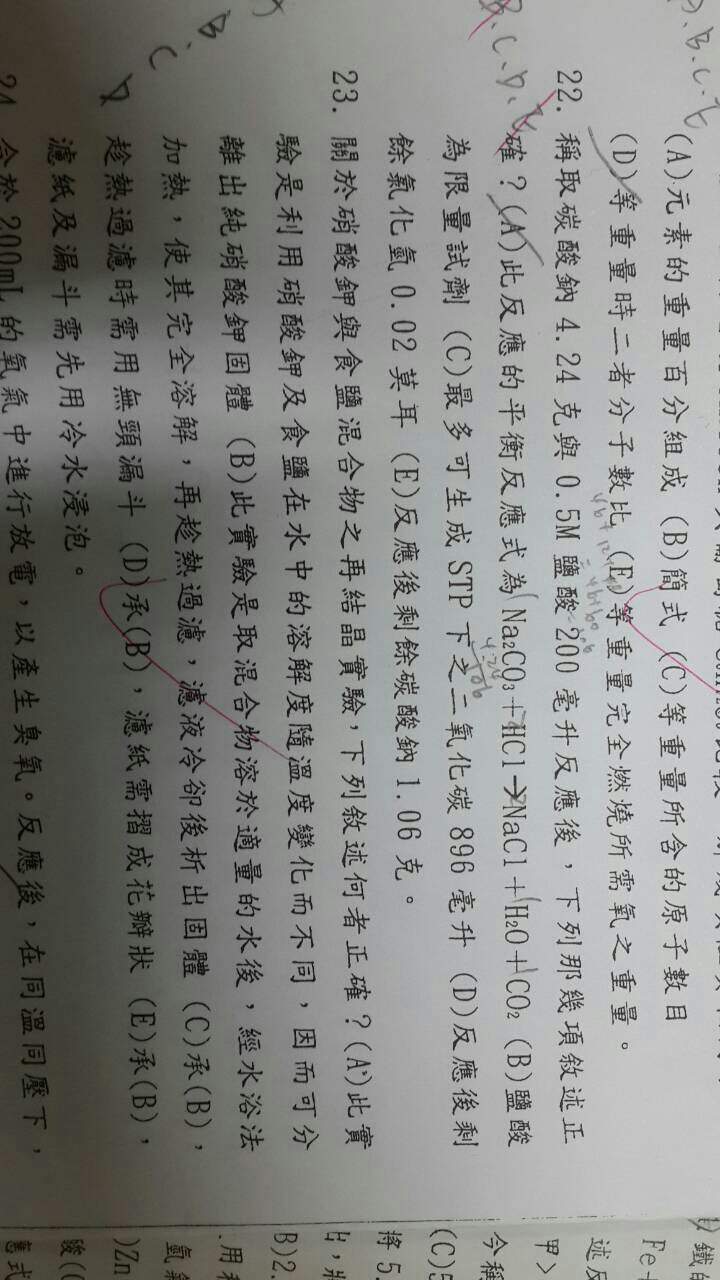 B.C.E
(A)元素的重量百分組成 (B)簡式 (C)等重量所含的原子數目
(D)等重量時二者分子數比 (E)等重量完全燃燒所需氧之重量。
22. 稱取碳酸鈉 4.24 克與 0.5M 鹽酸 200 毫升反應後，下列那幾項敘述正
B.C.D.E
確？(A)此反應的平衡反應式為 Na₂CO₃＋HCl→NaCl＋H₂O＋CO₂ (B)鹽酸
為限量試劑 (C)最多可生成 STP 下之二氧化碳 896 毫升 (D)反應後剩
餘氯化氫 0.02 莫耳 (E)反應後剩餘碳酸鈉 1.06 克。
23. 關於硝酸鉀與食鹽混合物之再結晶實驗，下列敘述何者正確？(A)此實
驗是利用硝酸鉀及食鹽在水中的溶解度隨溫度變化而不同，因而可分
B.
離出純硝酸鉀固體 (B)此實驗是取混合物溶於適量的水後，經水浴法
C
加熱，使其完全溶解，再趁熱過濾，濾液冷卻後析出固體 (C)承(B)，
趁熱過濾時需用無頸漏斗 (D)承(B)，濾紙需摺成花瓣狀 (E)承(B)，
濾紙及漏斗需先用冷水浸泡。
24 200mL 的氧氣中進行放電，以產生臭氧。反應後，在同溫同壓下，
Fe
述反
甲>
今稱
(C)5
將 5.
B)2.
用
氧
)Zn
酸(